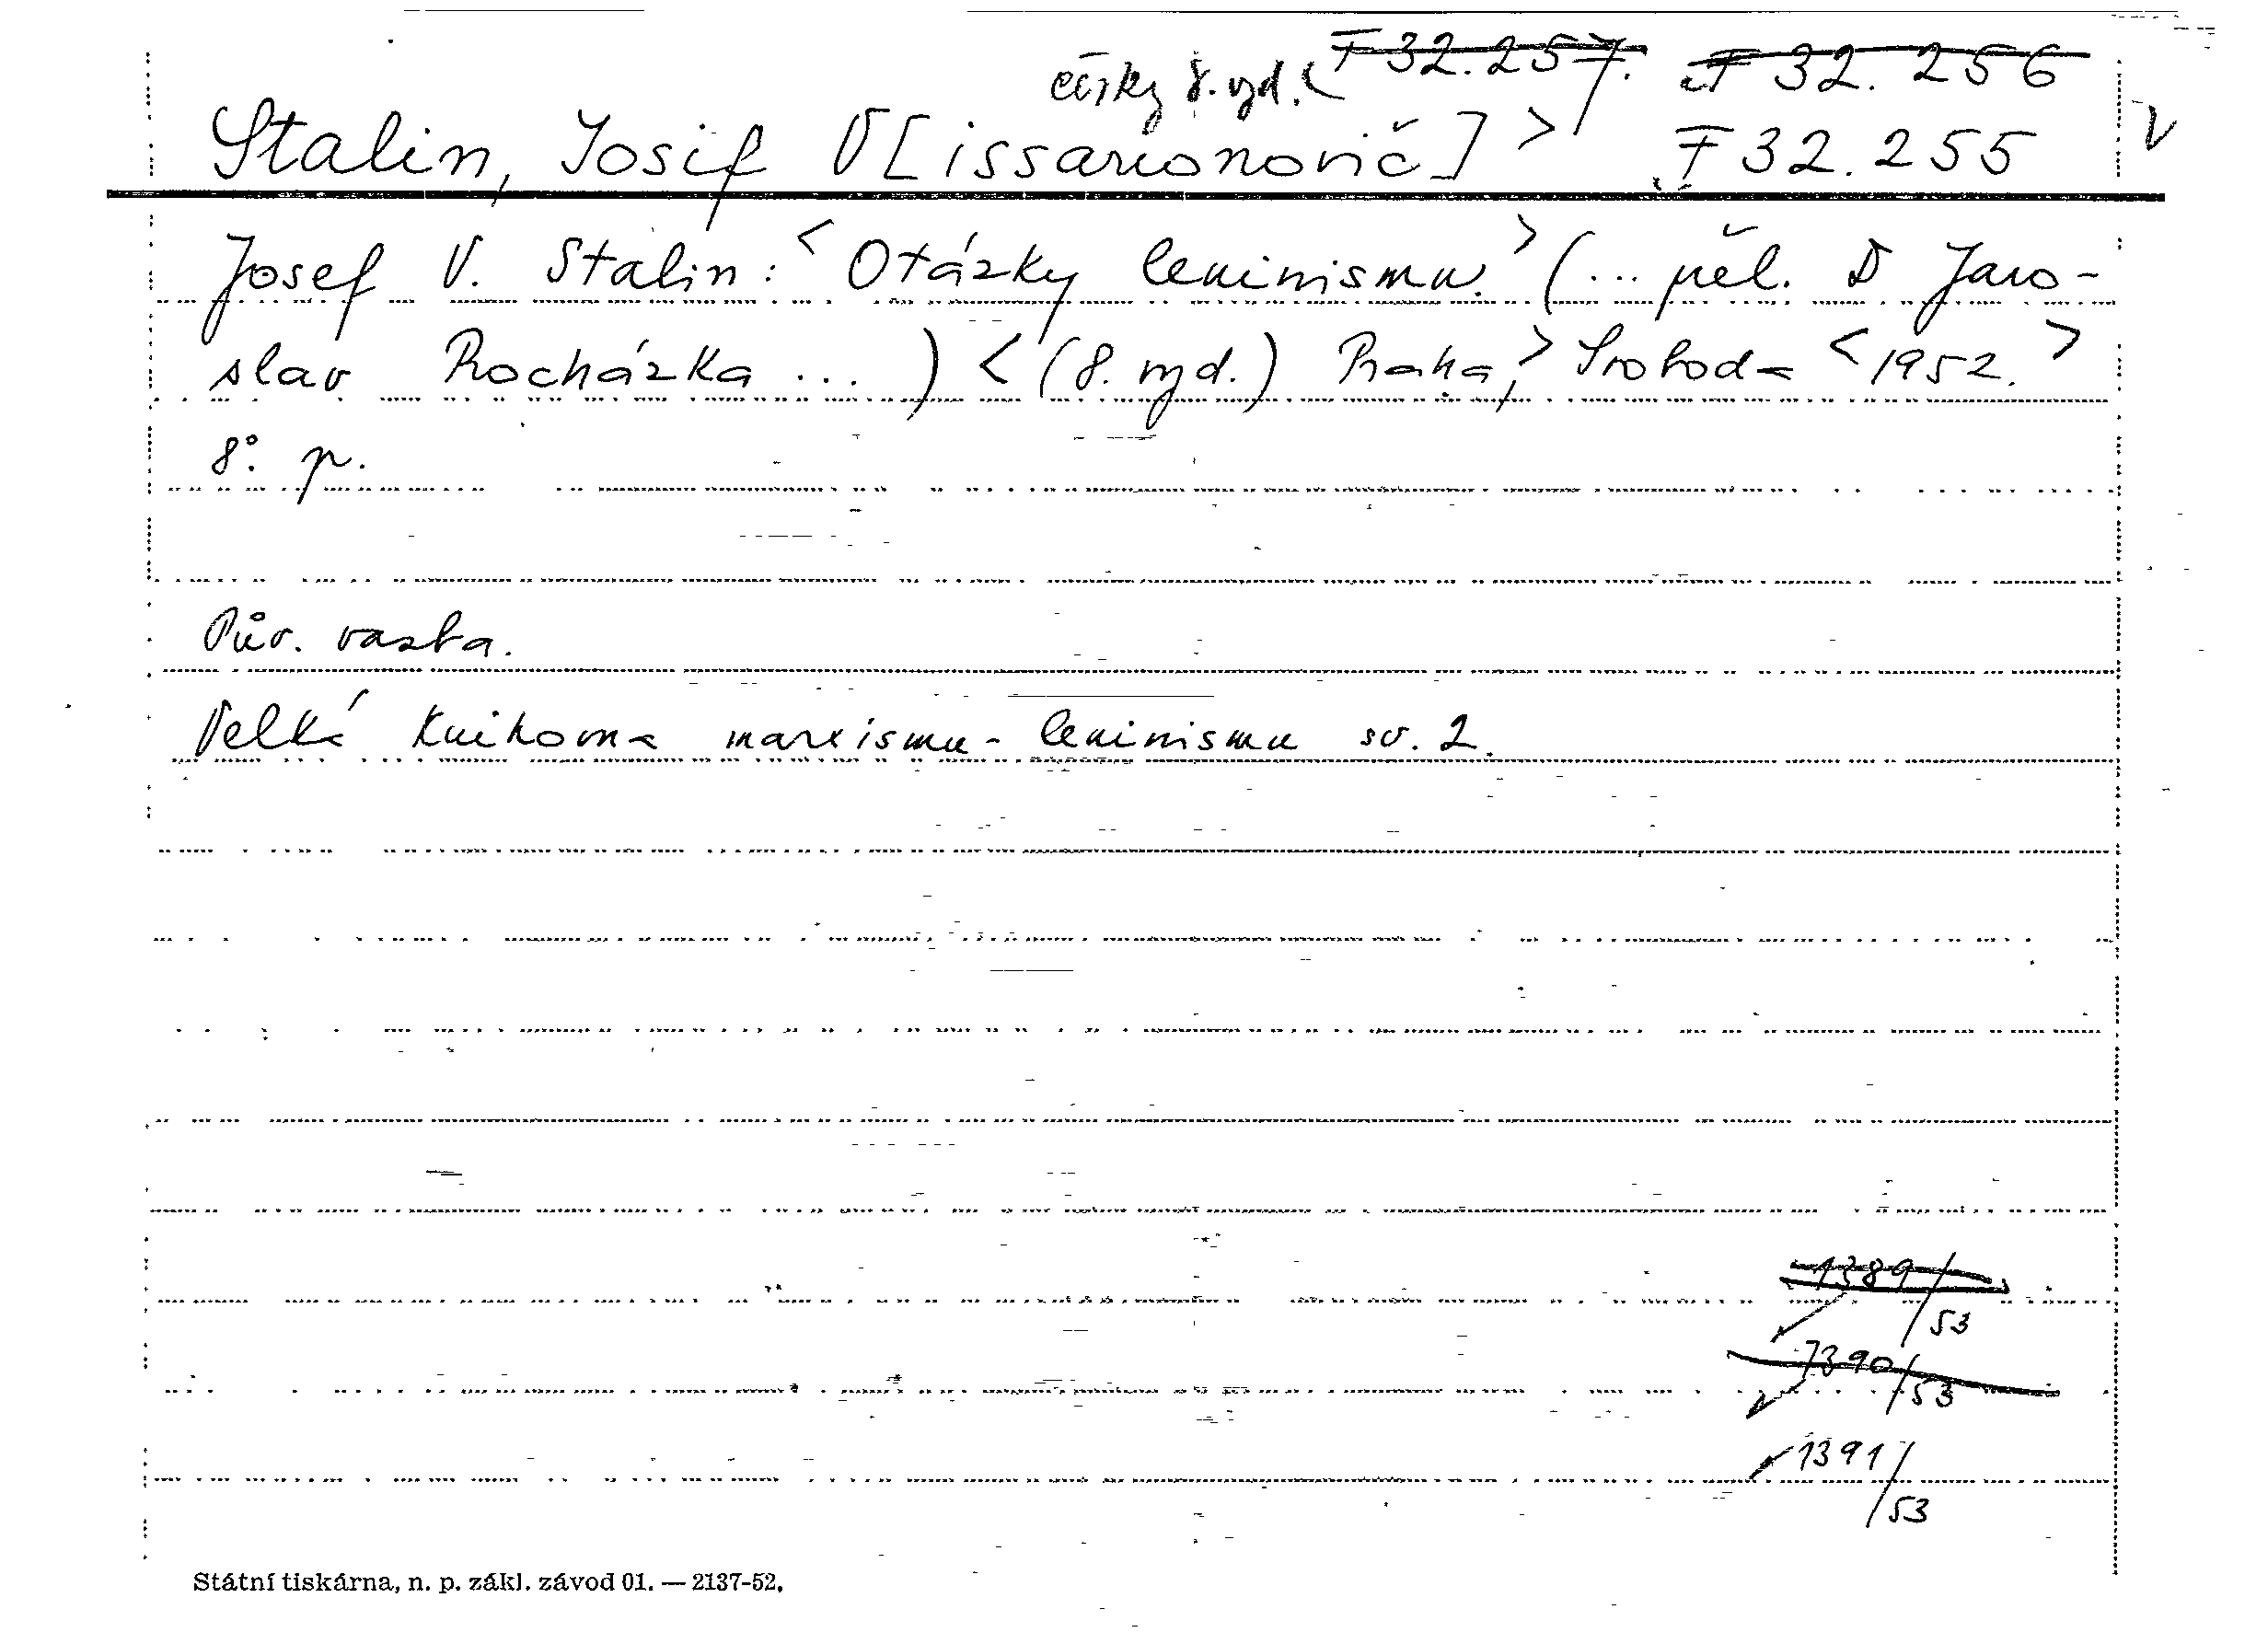 česky 8. vyd. ( F 32.257. F 32.256
Stalin, Josif V[issarionovič] > F 32.255 V
Josef V. Stalin: < Otázky leninismu. > (... přel. D Jaro-
slav Procházka ... ) < (8. vyd.) Praha, > Svoboda < 1952. >
8°. p.
Pův. vazba.
Velká knihovna marxismu-leninismu sv. 2.
1389/53
1390/53
1391/53
Státní tiskárna, n. p. zákl. závod 01. — 2137-52.